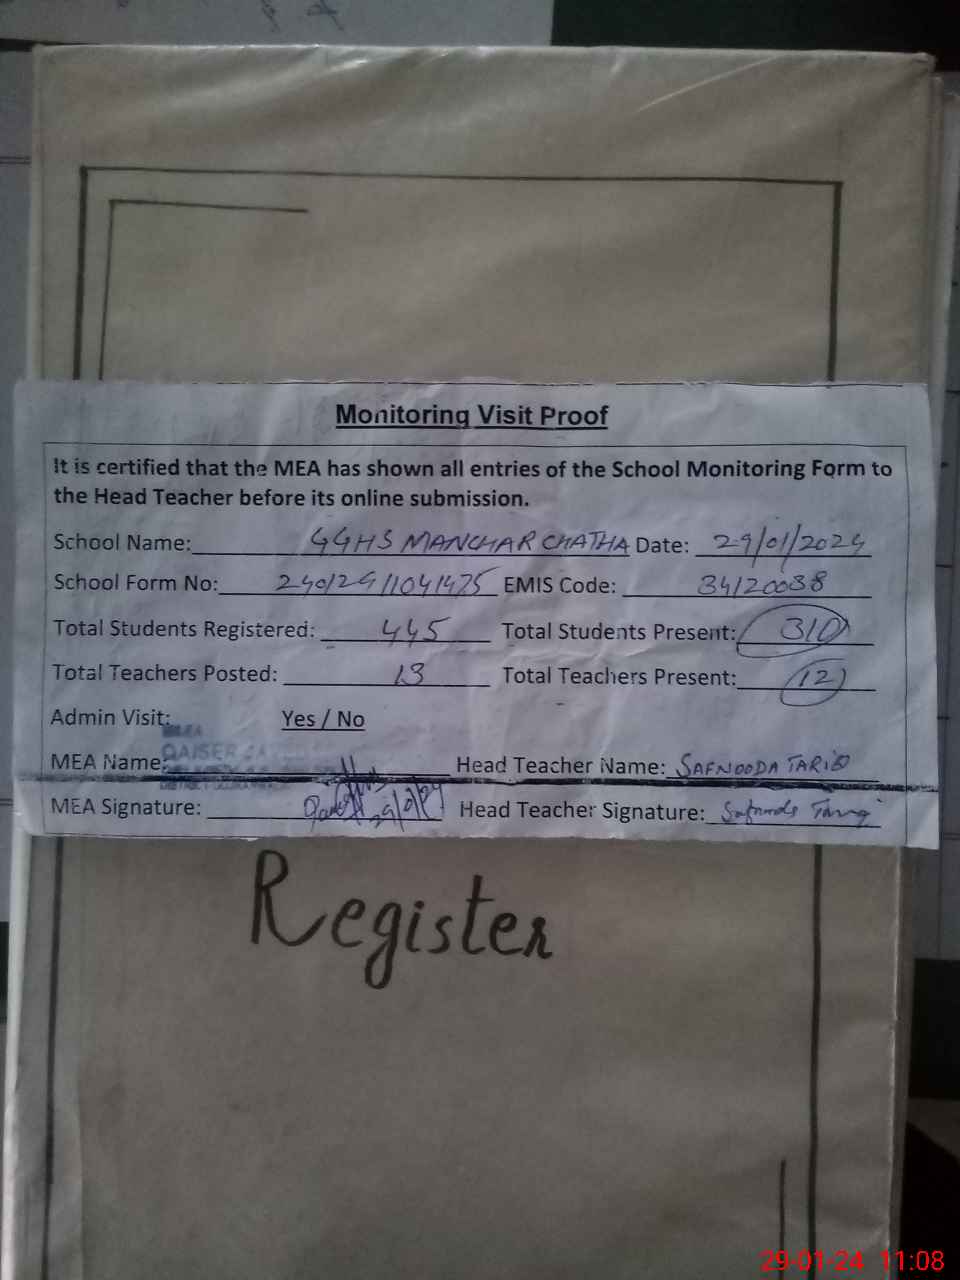 Monitoring Visit Proof
It is certified that the MEA has shown all entries of the School Monitoring Form to
the Head Teacher before its online submission.
School Name: GGHS MANCHAR CHATHA Date: 29/01/2024
School Form No: EMIS Code: 34120038
Total Students Registered: 445 Total Students Present: 310
Total Teachers Posted: 13 Total Teachers Present: 12
Admin Visit: Yes / No
MEA Name: QAISER Head Teacher Name: SAFNOODA TARIQ
MEA Signature: Head Teacher Signature:
Register
29-01-24 11:08